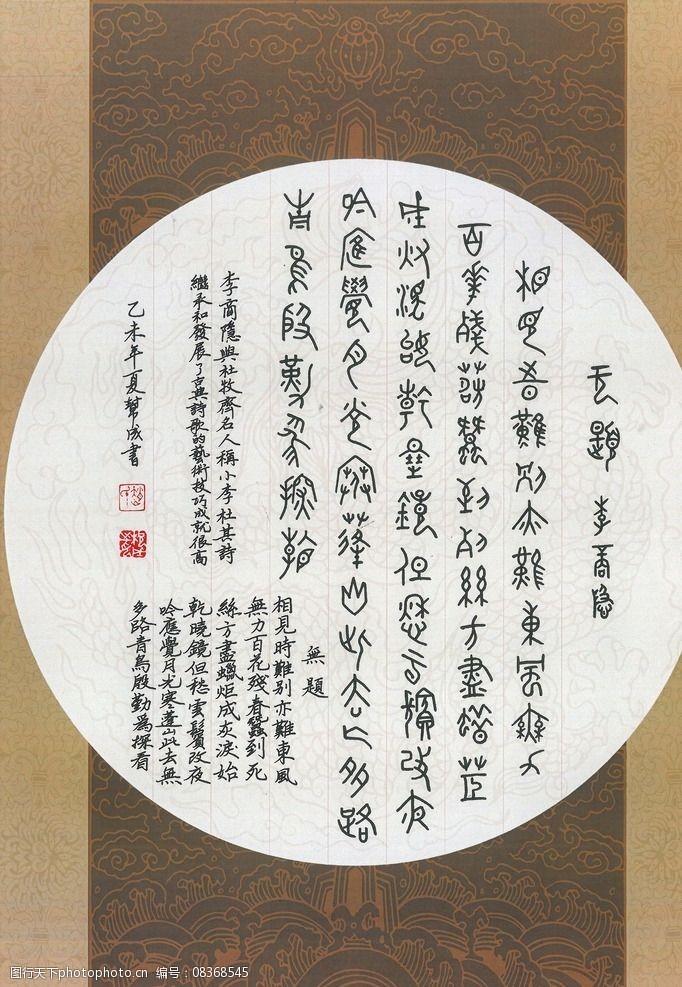 无題 李商隱
相見時難別亦難東風無力
百花殘春蠶到死絲方盡蠟炬
成灰淚始乾曉鏡但愁雲鬢改夜
吟應覺月光寒蓬山此去无多路
青鳥殷勤為探看
無題
相見時難別亦難東風
無力百花殘春蠶到死
絲方盡蠟炬成灰淚始
乾曉鏡但愁雲鬢改夜
吟應覺月光寒蓬山此去無
多路青鳥殷勤為探看
李商隱與杜牧齊名人稱小李杜其詩
繼承和發展了古典詩歌的藝術技巧成就很高
乙未年夏幫成書
图行天下photophoto.cn 编号：08368545